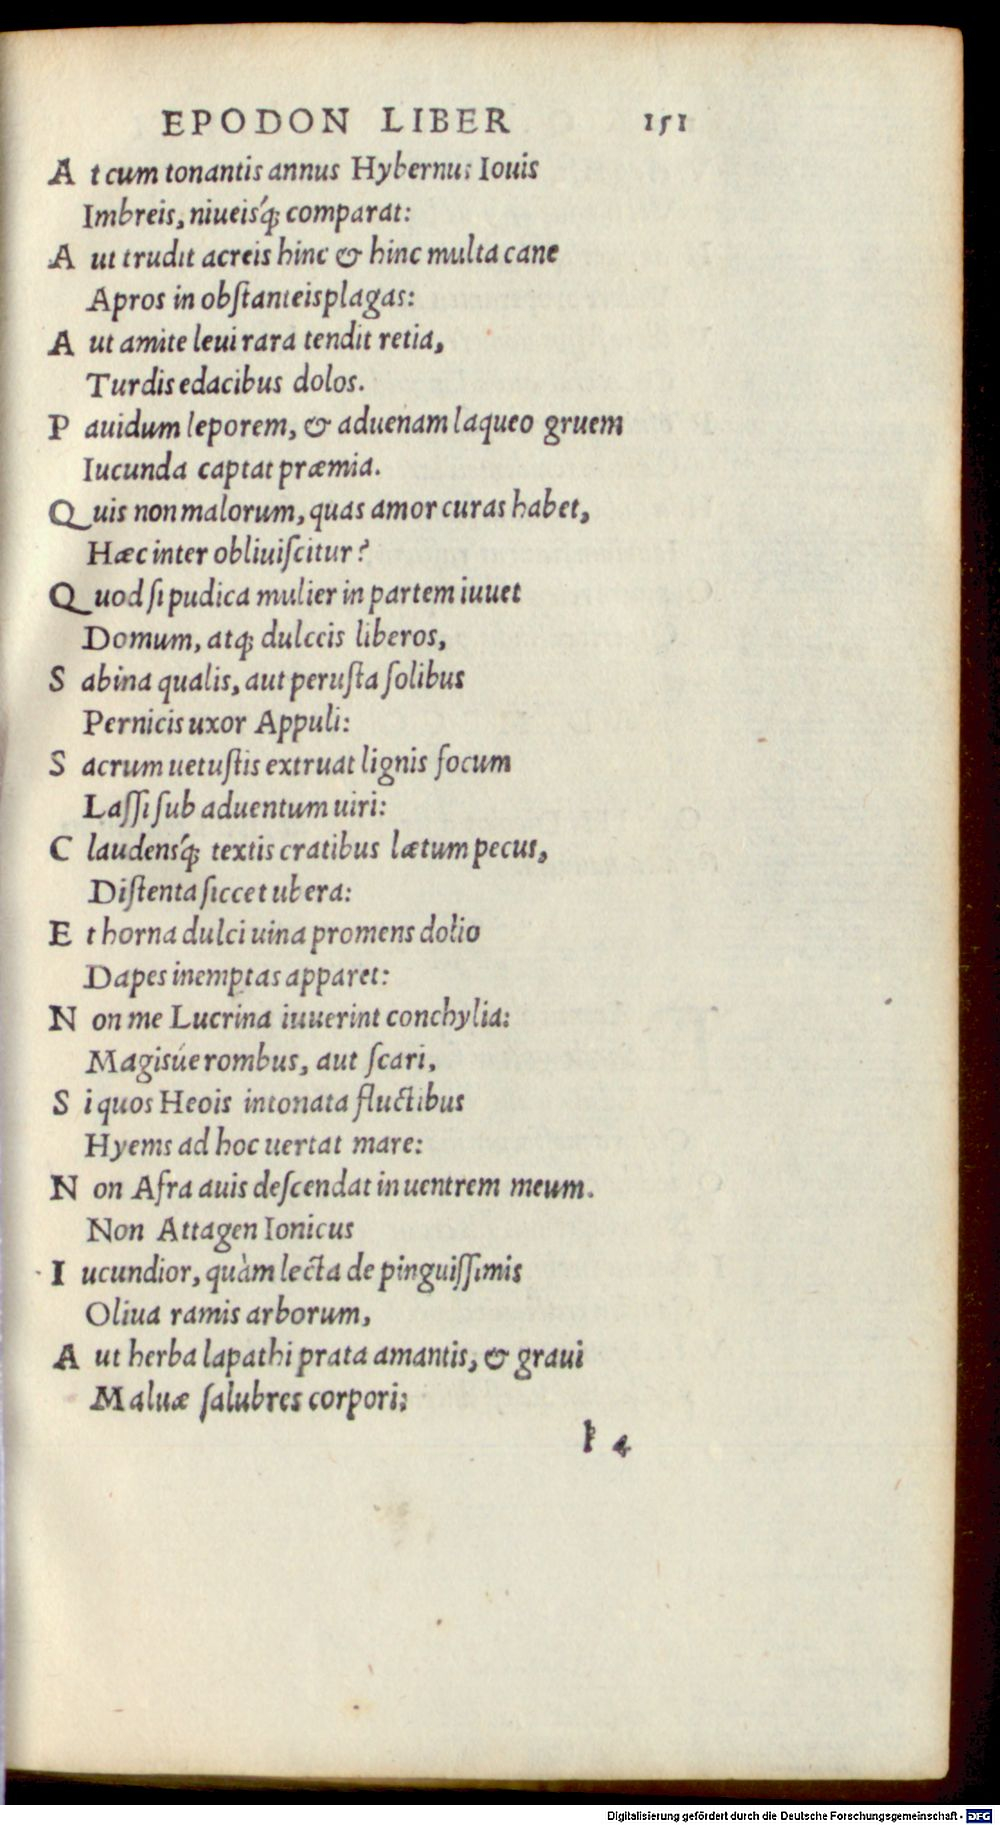 EPODON LIBER 151
A t cum tonantis annus Hybernus Iouis
Imbreis, niueisq́; comparat:
A ut trudit acreis hinc & hinc multa cane
Apros in obſtanteis plagas:
A ut amite leui rara tendit retia,
Turdis edacibus dolos.
P auidum leporem, & aduenam laqueo gruem
Iucunda captat præmia.
Q uis non malorum, quas amor curas habet,
Hæc inter obliuiſcitur?
Q uod ſi pudica mulier in partem iuuet
Domum, atq; dulceis liberos,
S abina qualis, aut peruſta ſolibus
Pernicis uxor Appuli:
S acrum uetuſtis extruat lignis focum
Laſſi ſub aduentum uiri:
C laudensq́; textis cratibus lætum pecus,
Diſtenta ſiccet ubera:
E t horna dulci uina promens dolio
Dapes inemptas apparet:
N on me Lucrina iuuerint conchylia:
Magisúe rombus, aut ſcari,
S i quos Heois intonata fluctibus
Hyems ad hoc uertat mare:
N on Afra auis deſcendat in uentrem meum.
Non Attagen Ionicus
I ucundior, quàm lecta de pinguiſſimis
Oliua ramis arborum,
A ut herba lapathi prata amantis, & graui
Maluæ ſalubres corpori;
k 4
Digitalisierung gefördert durch die Deutsche Forschungsgemeinschaft - DFG